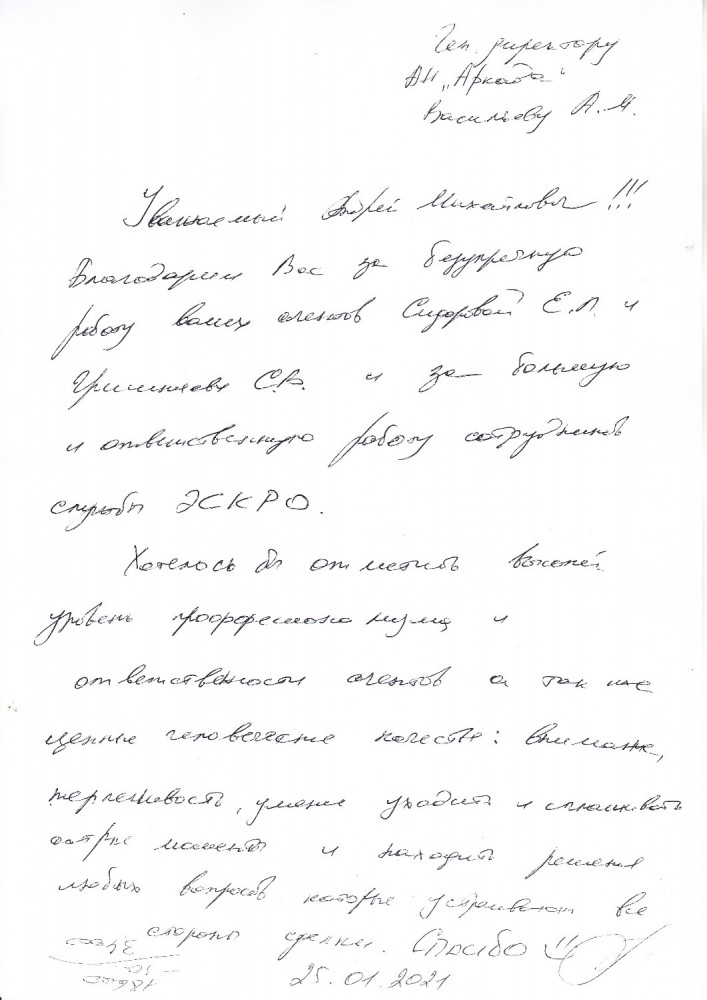 Ген. директору
АН „Аркада“
Васильеву А.М.
Уважаемый Андрей Михайлович!!!
Благодарим Вас за безупречную
работу ваших агентов Сидоровой Е.Л. и
С.В. и за большую
и ответственную работу сотрудников
службы ЭСКРО.
Хотелось бы отметить высокий
уровень профессионализма и
ответственности агентов а так же
ценные человеческие качества: внимание,
терпеливость, умение уходить и сглаживать
острые моменты и находить решения
любых вопросов которые устраивают все
стороны сделки. Спасибо!!
25.01.2021